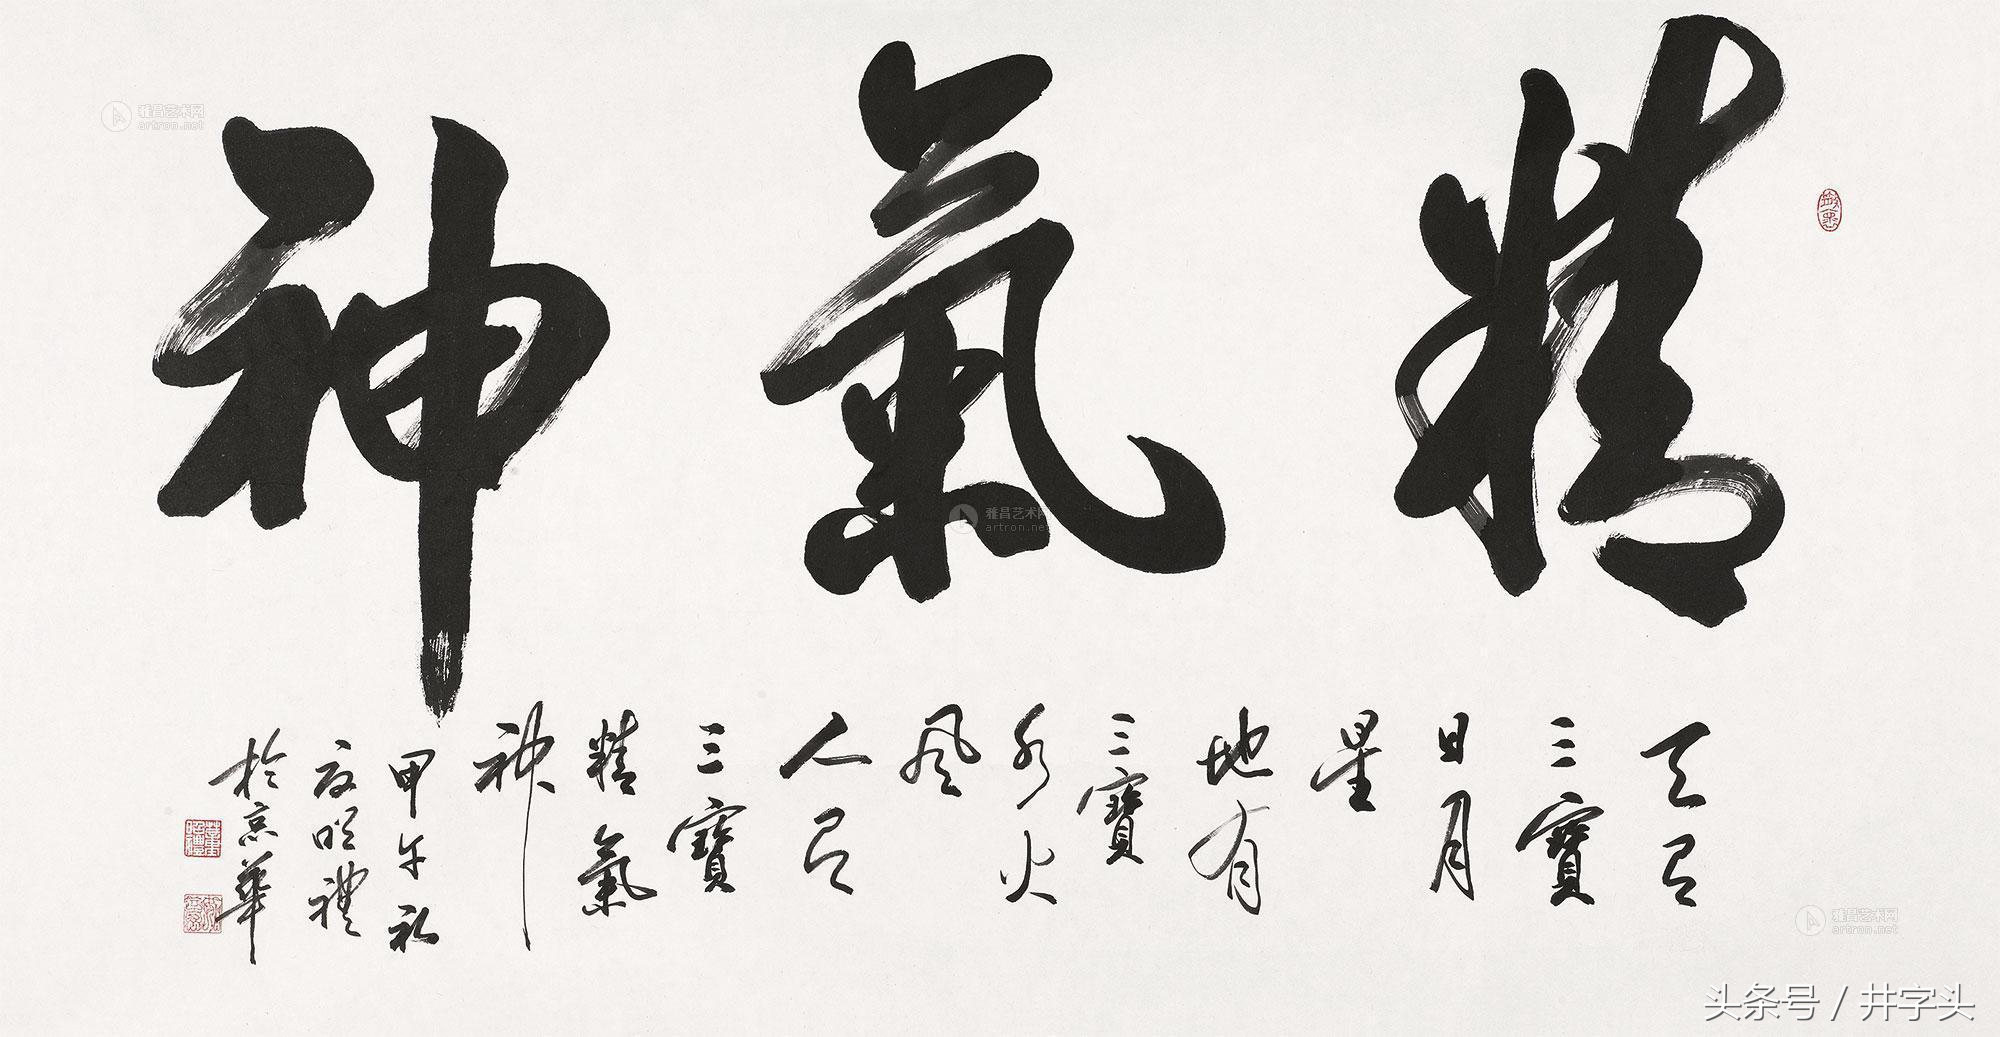 精氣神
天有
三寶
日月
星
地有
三寶
水火
風
人有
三寶
精氣
神
甲午初
夏昭禮
於京華
雅昌艺术网
artron.net
雅昌艺术网
artron.net
雅昌艺术网
artron.net
头条号 / 井字头